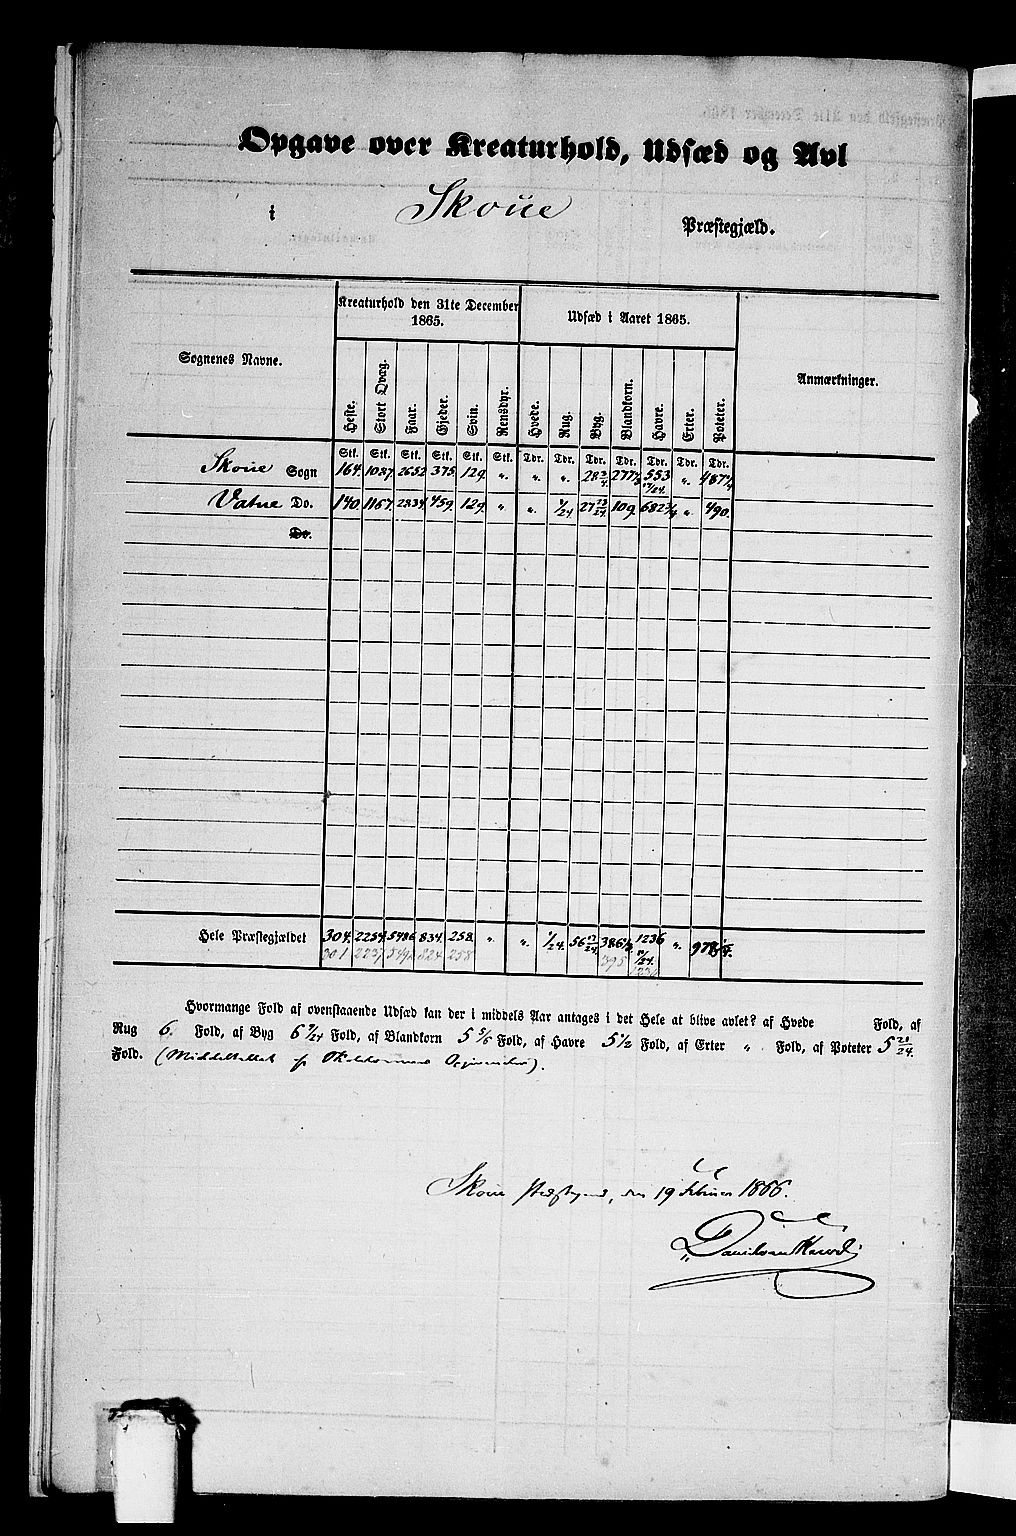 Opgave over Kreaturhold, Udsæd og Avl
i Skoüe Præstegjæld.
Sognenes Navne. Kreaturhold den 31te December 1865. Udsæd i Aaret 1865. Anmærkninger.
Heste. Stort Qvæg. Faar. Gjeder. Svin. Rensdyr. Hvede. Rug. Byg. Blandkorn. Havre. Erter. Poteter.
Stk. Stk. Stk. Stk. Stk. Stk. Tdr. Tdr. Tdr. Tdr. Tdr. Tdr. Tdr.
Skoüe Sogn 164. 1087. 2652 375. 129. " " " 28 3/4. 277 1/3 553 17/24. " 487 1/4
Vatne Do. 140. 1167. 2834. 459. 129. " " 1/24. 27 23/24. 109. 682 3/4 " 490.
Do.
Hele Præstegjældet 304. 2254. 5486 834. 258. " " 1/24. 56 17/24. 386 1/3 1236 11/24. "
301 2237 824 258 395
Hvormange Fold af ovenstaaende Udsæd kan der i middels Aar antages i det Hele at blive avlet? af Hvede Fold, af
Rug 6. Fold, af Byg 6 7/24 Fold, af Blandkorn 5 5/6 Fold, af Havre 5 1/2 Fold, af Erter " Fold, af Poteter 5 21/24.
Fold. (Middeltallet af
Skoüe den 19 Februar 1866.